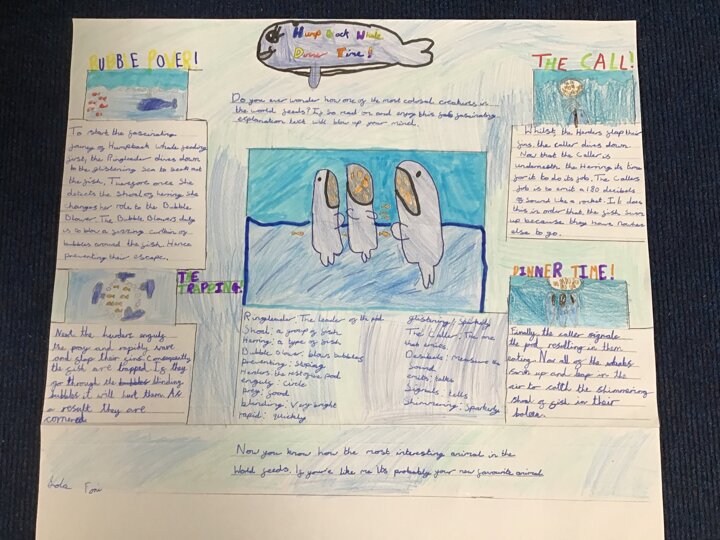 Hump Back Whale
Dinner Time!
BUBBLE POWER!
To start the fascinating
journey of Humpback Whale feeding
first, the Ringleader dives down
to the glistening sea to seek out
the fish. Therefore once She
detects the Shoal of herring She
changes her role to the Bubble
Blower. The Bubble Blowers duty
is to blow a fizzing curtain of
bubbles around the fish. Hence
preventing their escape.
THE
TRAPPING!
Next the herders engulf
the pray and rapidly wave
and slap their fins. Consequently
the fish are trapped. If they
go through the blinding
bubbles it will hurt them. As
a result they are
cornered.
Do you ever wonder how one of the most colosal creatures in
the world feeds? If so read on and enjoy this fascinating
explanation text will blow up your mind.
Ringleader: The leader of the pod
Shoal: a group of fish
Herring: a type of fish
Bubble blower: blows bubbles
preventing: stoping
Herders: the rest of the pod
engulf: circle
prey: food
blinding: very bright
rapid: quickly
glistening: sparkely
The Caller: The one
that emits
Desibels: Measures the
Sound
emits: talks
Signals: tells
Shimmering: Sparkerly
THE CALL!
Whilst the Herders slap their
fins, the caller dives down.
Now that the Caller is
underneath the Herring its time
for it to do its job. The Callers
job is to emit a 180 decibels
of Sound like a rocket. It does
this in order that, the fish Swim
up because they have nowhere
else to go.
DINNER TIME!
Finally, the caller signals
the pod, resulting in them
eating. Now all of the whales
swim up and leap in the
air to catch the shimmering
shoal of fish in their
baleen.
Now you know how the most interesting animal in the
World feeds. If you're like me Its probably your new favourite animal